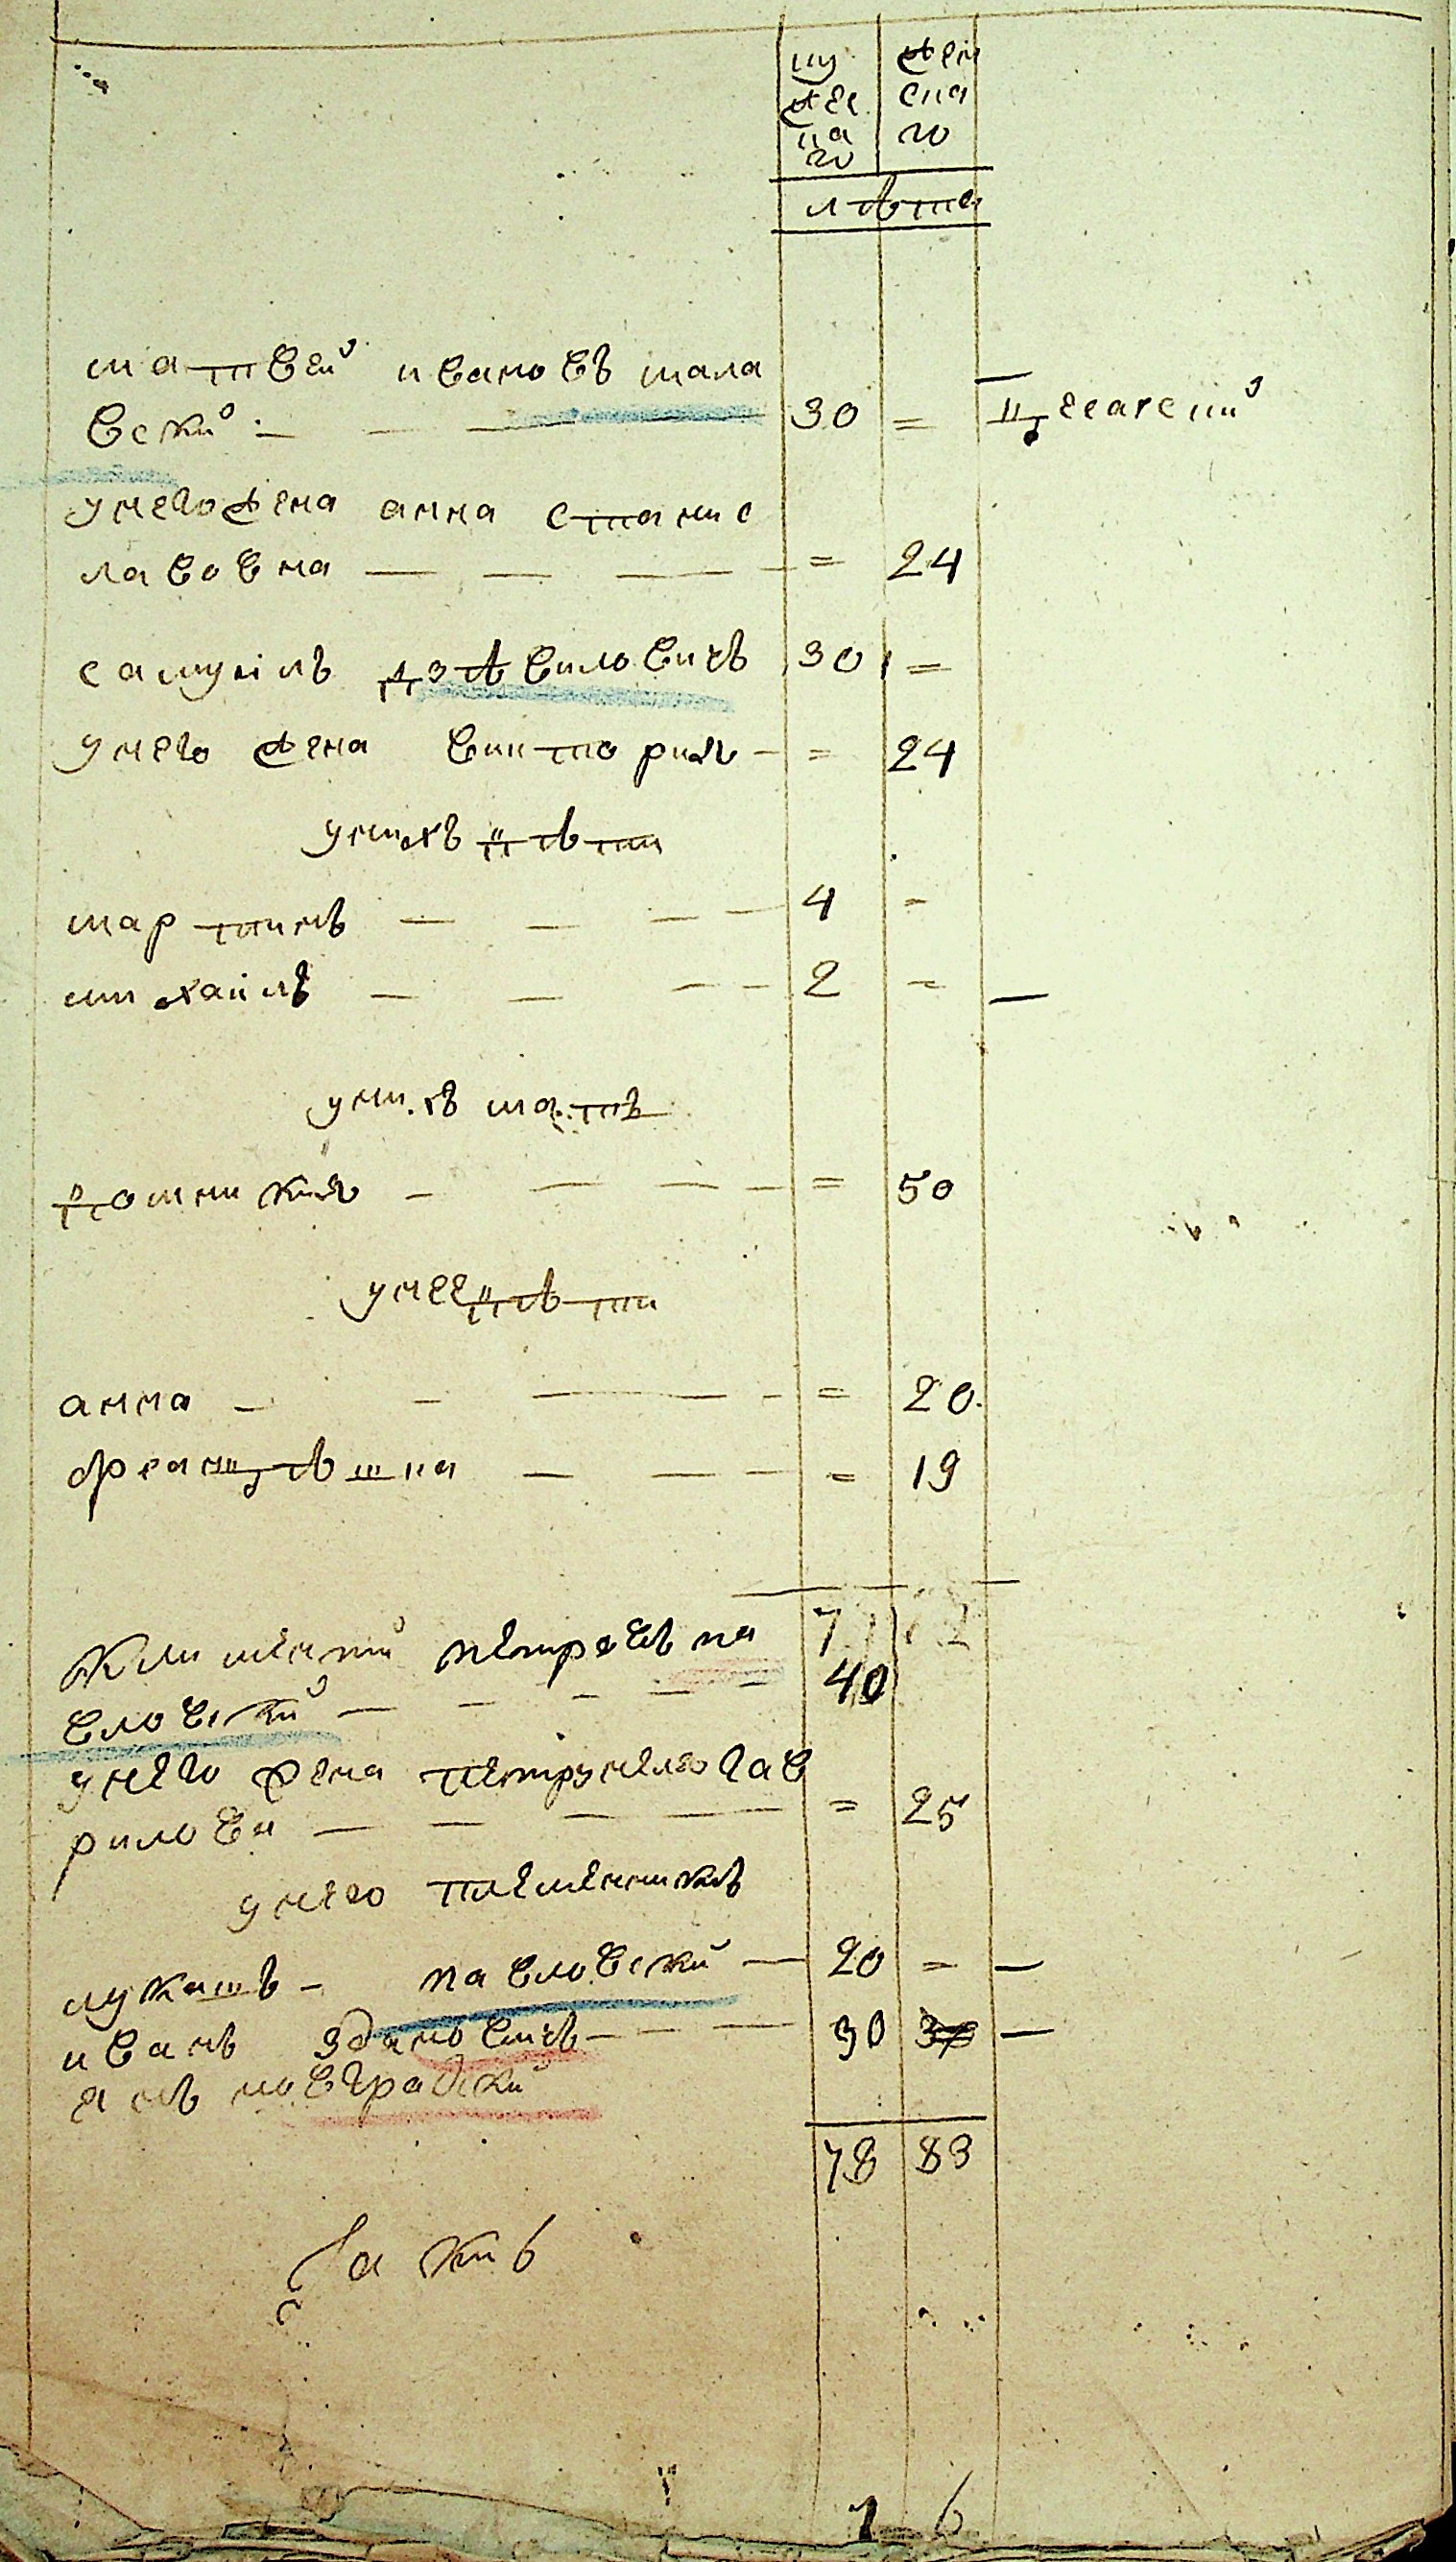 му жес ка го | жен ска го
лѣта
матвей ивановъ мала
вский — — — 30 =
унего жена анна станис
лавовна — — — = 24
самуилъ дзѣвиловичъ 30 =
унего жена виктория — = 24
унихъ дѣти
мартинъ — — — — 4 =
михаилъ — — — — 2 = —
унихъ мать
доминикия — — — — = 50
унее дѣти
анна — — — — = 20
францѣшка — — — = 19
климентий петровъ па 7
вловский — — — — 40
унего жена петрунеля гав
рилова — — — — = 25
унего племенникъ
лукашъ — павловский — 20 = —
иванъ здановичъ — — — 30 —
янъ новградский
78 83
1 6